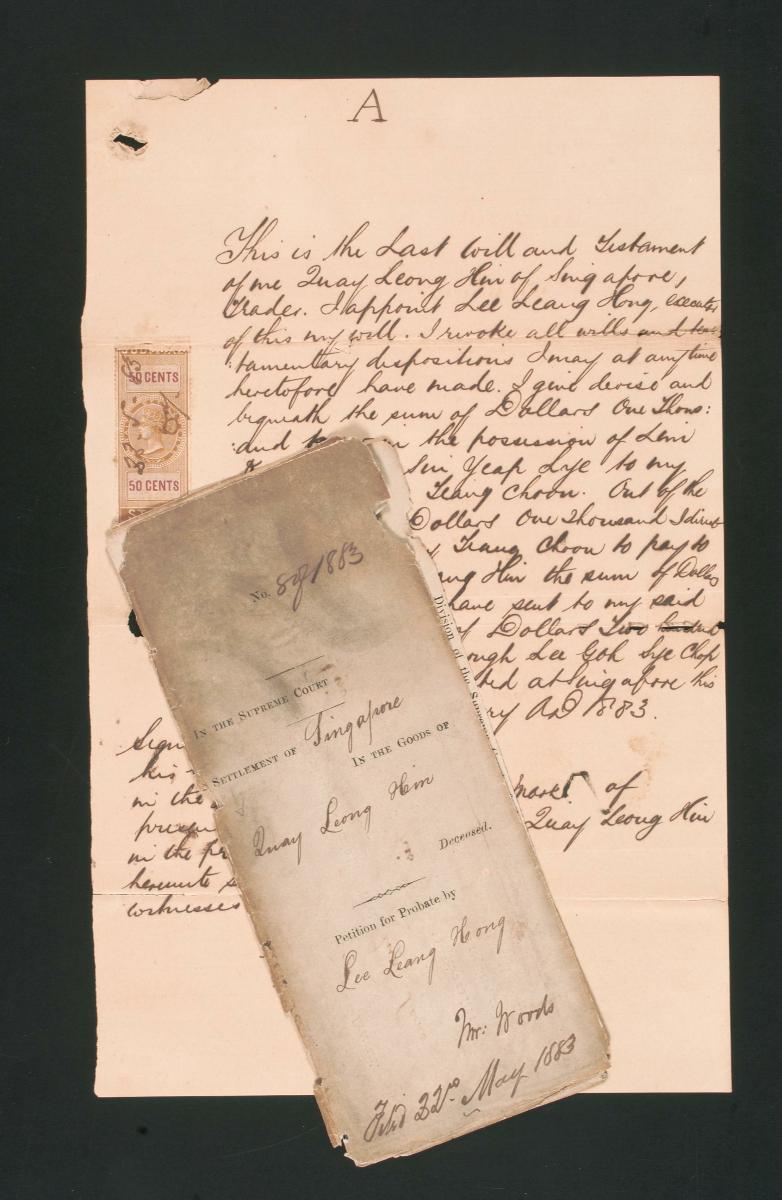 A
This is the Last Will and Testament
of me Quay Leong Hin of Singapore,
Trader. I appoint Lee Leang Hong, executor
of this my will. I revoke all wills and tes:
:tamentary dispositions I may at any time
heretofore have made. I give devise and
bequeath the sum of Dollars One Thous:
:and the possession of Lim
Sin Yeap Lye to my
Teang Choon. Out of the
Dollars One Thousand I direct
Teang Choon to pay to
Hin the sum of Dollars
have sent to my said
of Dollars Two hundred
Lee Goh Sye Chop
at Singapore this
ry AD 1883.
50 CENTS
50 CENTS
Sign
his
in the
presen
in the pr
hereunto s
witnesses
mark of
Quay Leong Hin
No. 8 of 1883
IN THE SUPREME COURT
SETTLEMENT OF Singapore
IN THE GOODS OF
Quay Leong Hin
Deceased.
Petition for Probate by
Lee Leang Hong
Mr. Woods
Filed May 1883
Division of the Supreme